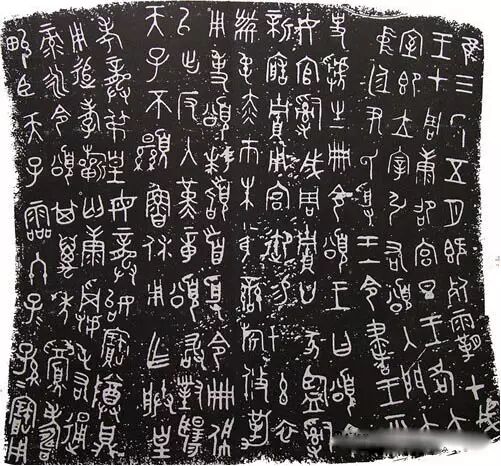 隹三年五月既死霸甲戌
王才周康邵宮旦王各大
室即立宰引右頌入門立
中廷尹氏受王令書王乎
史虢生冊令頌王曰頌令
女官𤔲成周貯廿家監𤔲
新造貯用宮御易女玄衣
黹屯赤巿朱黃鑾旂攸勒
用事頌拜𩒨首受令冊佩
以出反入堇章頌敢對揚
天子不顯魯休用乍朕皇
考龏弔皇母龏姒寶尊鼎
用追孝祈匄康屯右通
彔永令頌其萬年眉壽
畯臣天子霝冬子=孫=寶用